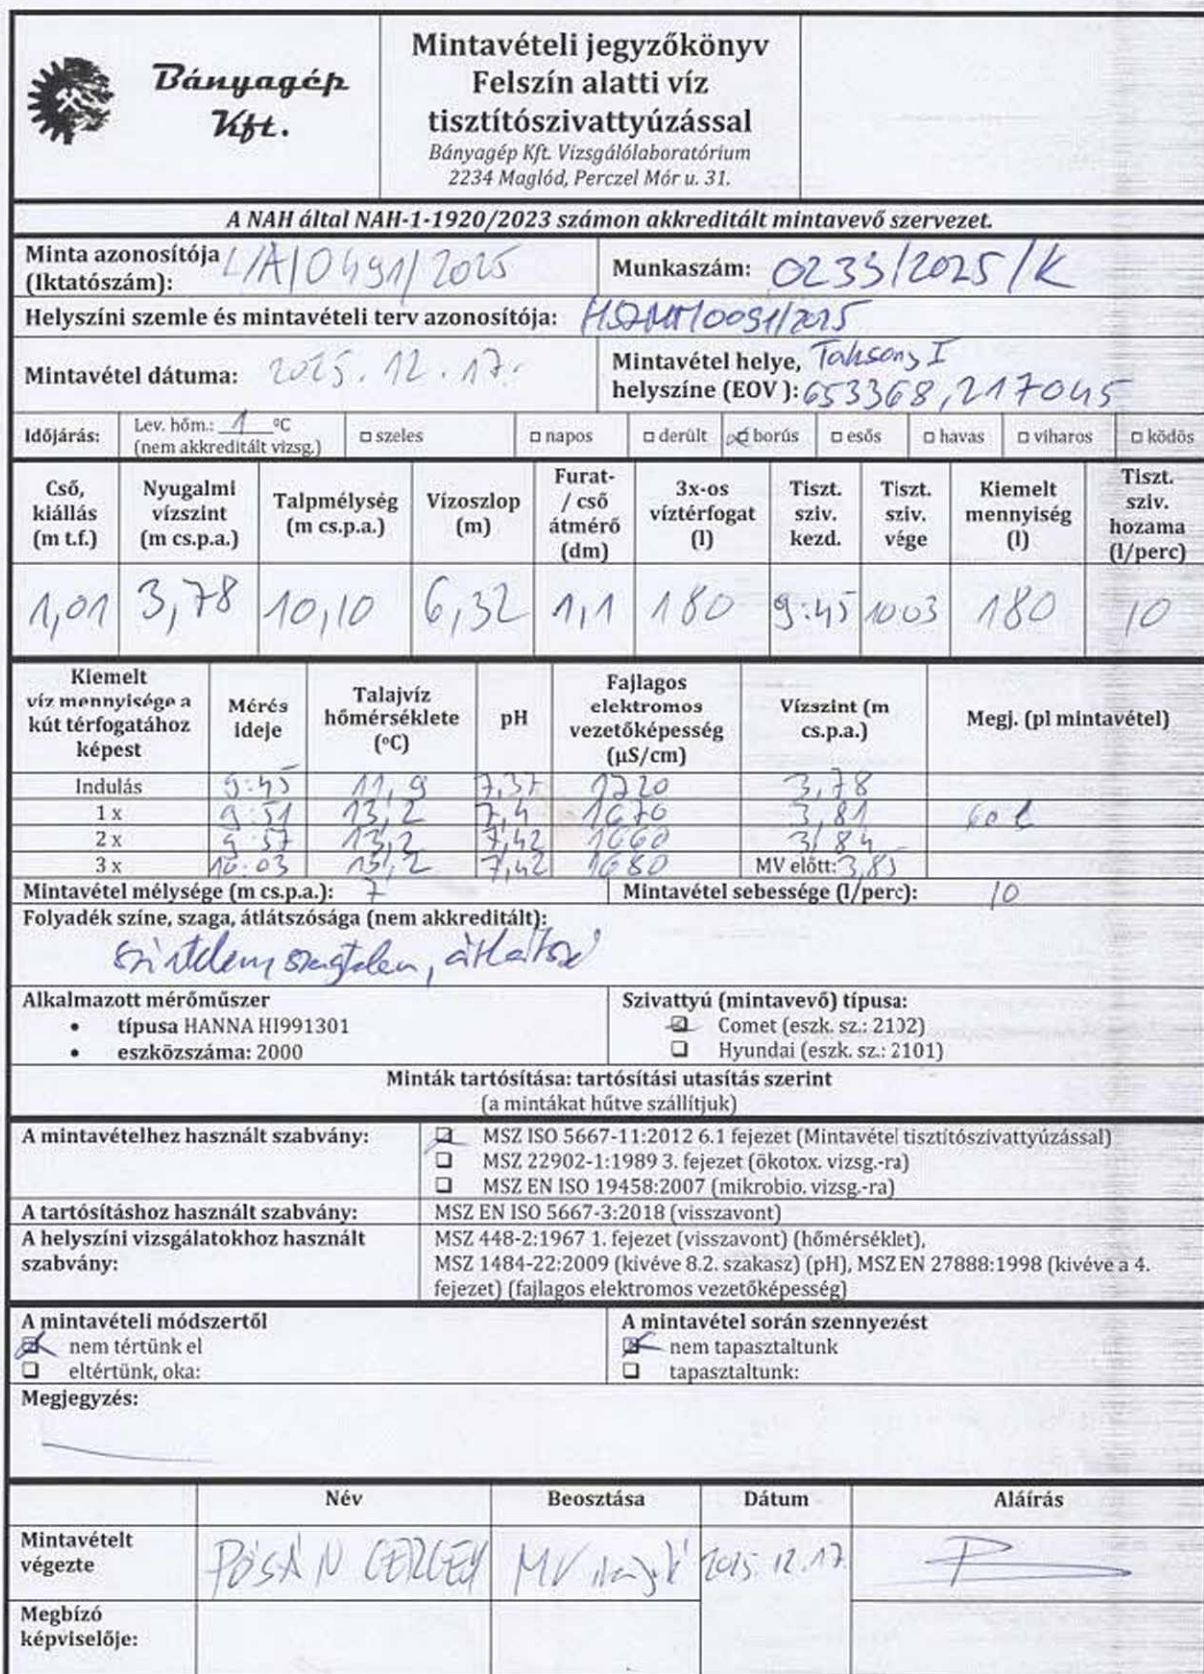 Bányagép
Kft.
Mintavételi jegyzőkönyv
Felszín alatti víz
tisztítószivattyúzással
Bányagép Kft. Vizsgálólaboratórium
2234 Maglód, Perczel Mór u. 31.
A NAH által NAH-1-1920/2023 számon akkreditált mintavevő szervezet.
Minta azonosítója (Iktatószám): L/A/0491/2025
Munkaszám: 0233/2025/K
Helyszíni szemle és mintavételi terv azonosítója:
Mintavétel dátuma: 2025.12.17.
Mintavétel helye, Taksony I
helyszíne (EOV): 653368, 217045
Időjárás: Lev. hőm.: 1 °C (nem akkreditált vizsg.) □ szeles □ napos □ derült ☒ borús □ esős □ havas □ viharos □ ködös
Cső, kiállás (m t.f.) Nyugalmi vízszint (m cs.p.a.) Talpmélység (m cs.p.a.) Vízoszlop (m) Furat- / cső átmérő (dm) 3x-os víztérfogat (l) Tiszt. sziv. kezd. Tiszt. sziv. vége Kiemelt mennyiség (l) Tiszt. sziv. hozama (l/perc)
1,01 3,78 10,10 6,32 1,1 180 9:45 1003 180 10
Kiemelt víz mennyisége a kút térfogatához képest Mérés ideje Talajvíz hőmérséklete (°C) pH Fajlagos elektromos vezetőképesség (µS/cm) Vízszint (m cs.p.a.) Megj. (pl mintavétel)
Indulás 9:45 11,9 7,37 1720 3,78
1 x 9:51 13,2 7,4 1670 3,81 60 l
2 x 9:57 13,2 7,42 1660 3,84
3 x 10:03 13,2 7,42 1680 MV előtt: 3,85
Mintavétel mélysége (m cs.p.a.): 7 Mintavétel sebessége (l/perc): 10
Folyadék színe, szaga, átlátszósága (nem akkreditált):
színtelen, szagtalan, átlátszó
Alkalmazott mérőműszer
• típusa HANNA HI991301
• eszközszáma: 2000
Szivattyú (mintavevő) típusa:
☒ Comet (eszk. sz.: 2102)
❑ Hyundai (eszk. sz.: 2101)
Minták tartósítása: tartósítási utasítás szerint
(a mintákat hűtve szállítjuk)
A mintavételhez használt szabvány:
☒ MSZ ISO 5667-11:2012 6.1 fejezet (Mintavétel tisztítószivattyúzással)
❑ MSZ 22902-1:1989 3. fejezet (ökotox. vizsg.-ra)
❑ MSZ EN ISO 19458:2007 (mikrobio. vizsg.-ra)
A tartósításhoz használt szabvány: MSZ EN ISO 5667-3:2018 (visszavont)
A helyszíni vizsgálatokhoz használt szabvány:
MSZ 448-2:1967 1. fejezet (visszavont) (hőmérséklet),
MSZ 1484-22:2009 (kivéve 8.2. szakasz) (pH), MSZ EN 27888:1998 (kivéve a 4.
fejezet) (fajlagos elektromos vezetőképesség)
A mintavételi módszertől
☒ nem tértünk el
❑ eltértünk, oka:
A mintavétel során szennyezést
☒ nem tapasztaltunk
❑ tapasztaltunk:
Megjegyzés:
Név Beosztása Dátum Aláírás
Mintavételt végezte PÓSÁN GERGELY MV 2025.12.17.
Megbízó képviselője: